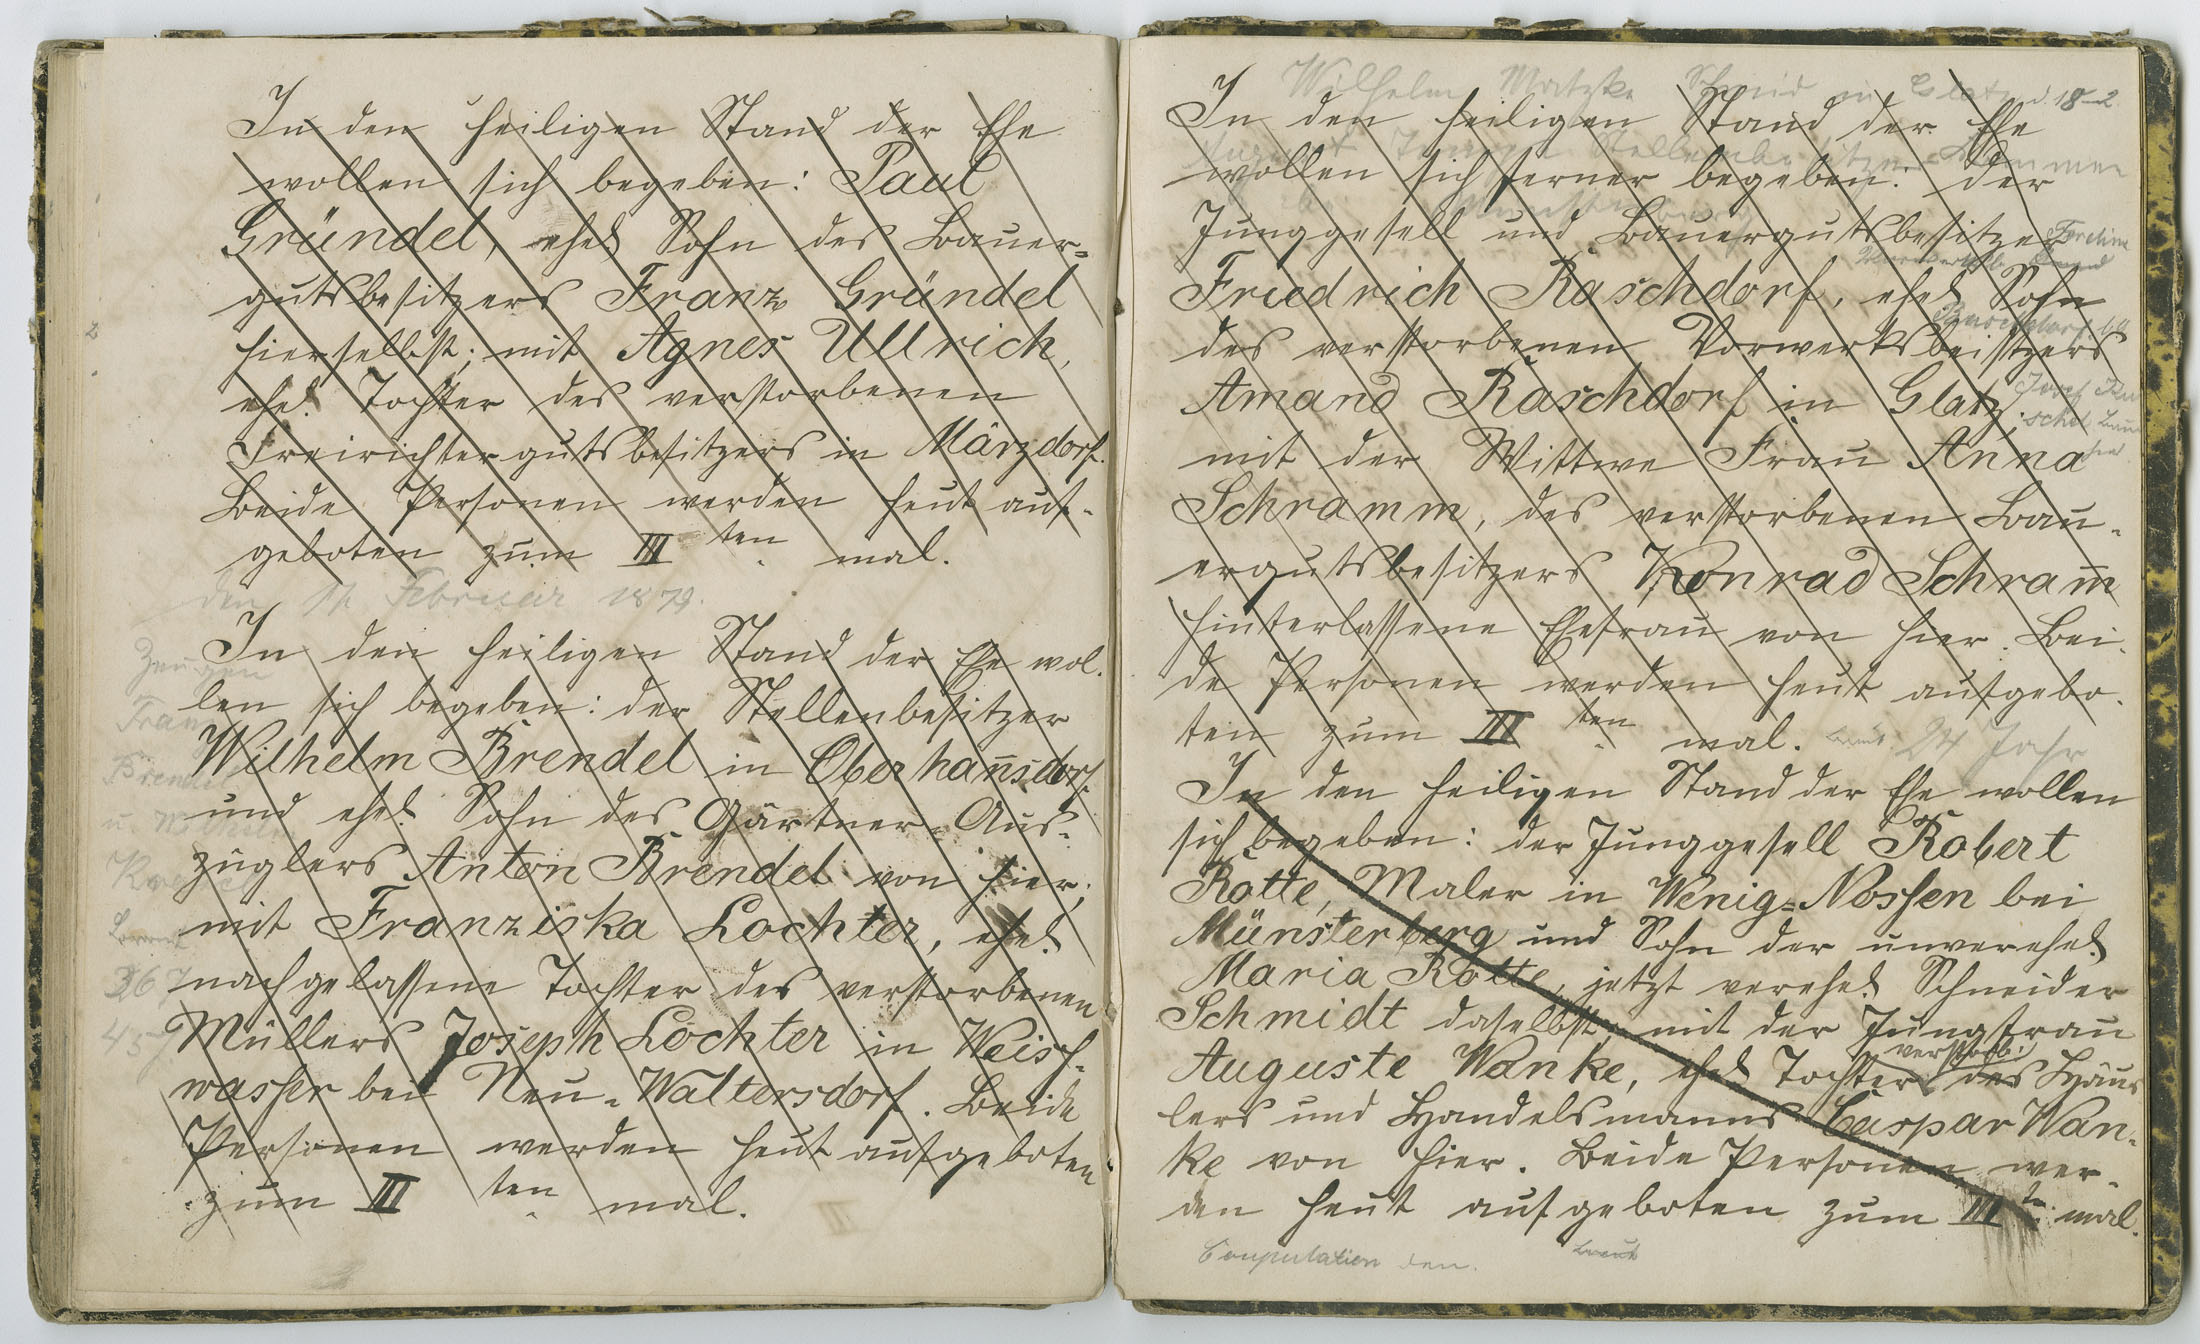 In den heiligen Stand der Ehe
wollen sich begeben: Paul
Gründel, ehel Sohn des Bauer=
gutsbesitzers Franz Gründel
hierselbst; mit Agnes Ullrich,
ehel. Tochter des verstorbenen
Freirichtergutsbesitzers in Märzdorf.
Beide Personen werden heut auf-
geboten zum III ten mal.
den 11. Februar 1879.
In den heiligen Stand der Ehe wol-
len sich begeben: der Stellenbesitzer
Wilhelm Brendel in Oberhan̄sdorf
und ehel. Sohn des Gärtner-Aus-
züglers Anton Brendel von hier;
mit Franziska Lochter, ehel.
nachgelassene Tochter des verstorbenen
Müllers Joseph Lochter in Weiss-
wasser bei Neu-Waltersdorf. Beide
Personen werden heut aufgeboten
zum III ten mal.
Zeugen
Franz
Brendel
u. Wilhelm
Braut
367
457
Wilhelm Matzke Schmid in Glatz d. 18-2.
In den heiligen Stand der Ehe
wollen sich ferner begeben: der
Junggesell und Bauergutsbesitzer
Friedrich Raschdorf, ehel Sohn
des verstorbenen Vorwerksbesitzers
Amand Raschdorf in Glatz;
mit der Wittwe Frau Anna
Schramm, des verstorbenen Bau-
ergutsbesitzers Konrad Schram̄
hinterlassene Ehefrau von hier. Bei-
de Personen werden heut aufgebo-
ten zum III ten mal. Braut 24 Jahr
In den heiligen Stand der Ehe wollen
sich begeben: der Junggesell Robert
Rotte, Maler in Wenig=Nossen bei
Münsterberg und Sohn der unverehel
Maria Rotte, jetzt verehel Schneider
Schmidt daselbst; mit der Jungfrau
Auguste Wanke, ehel Tochter des verstorb: Häus
lers und Handelsmanns Caspar Wan-
ke von hier. Beide Personen wer-
den heut aufgeboten zum III ten mal.
Copulation den. Braut